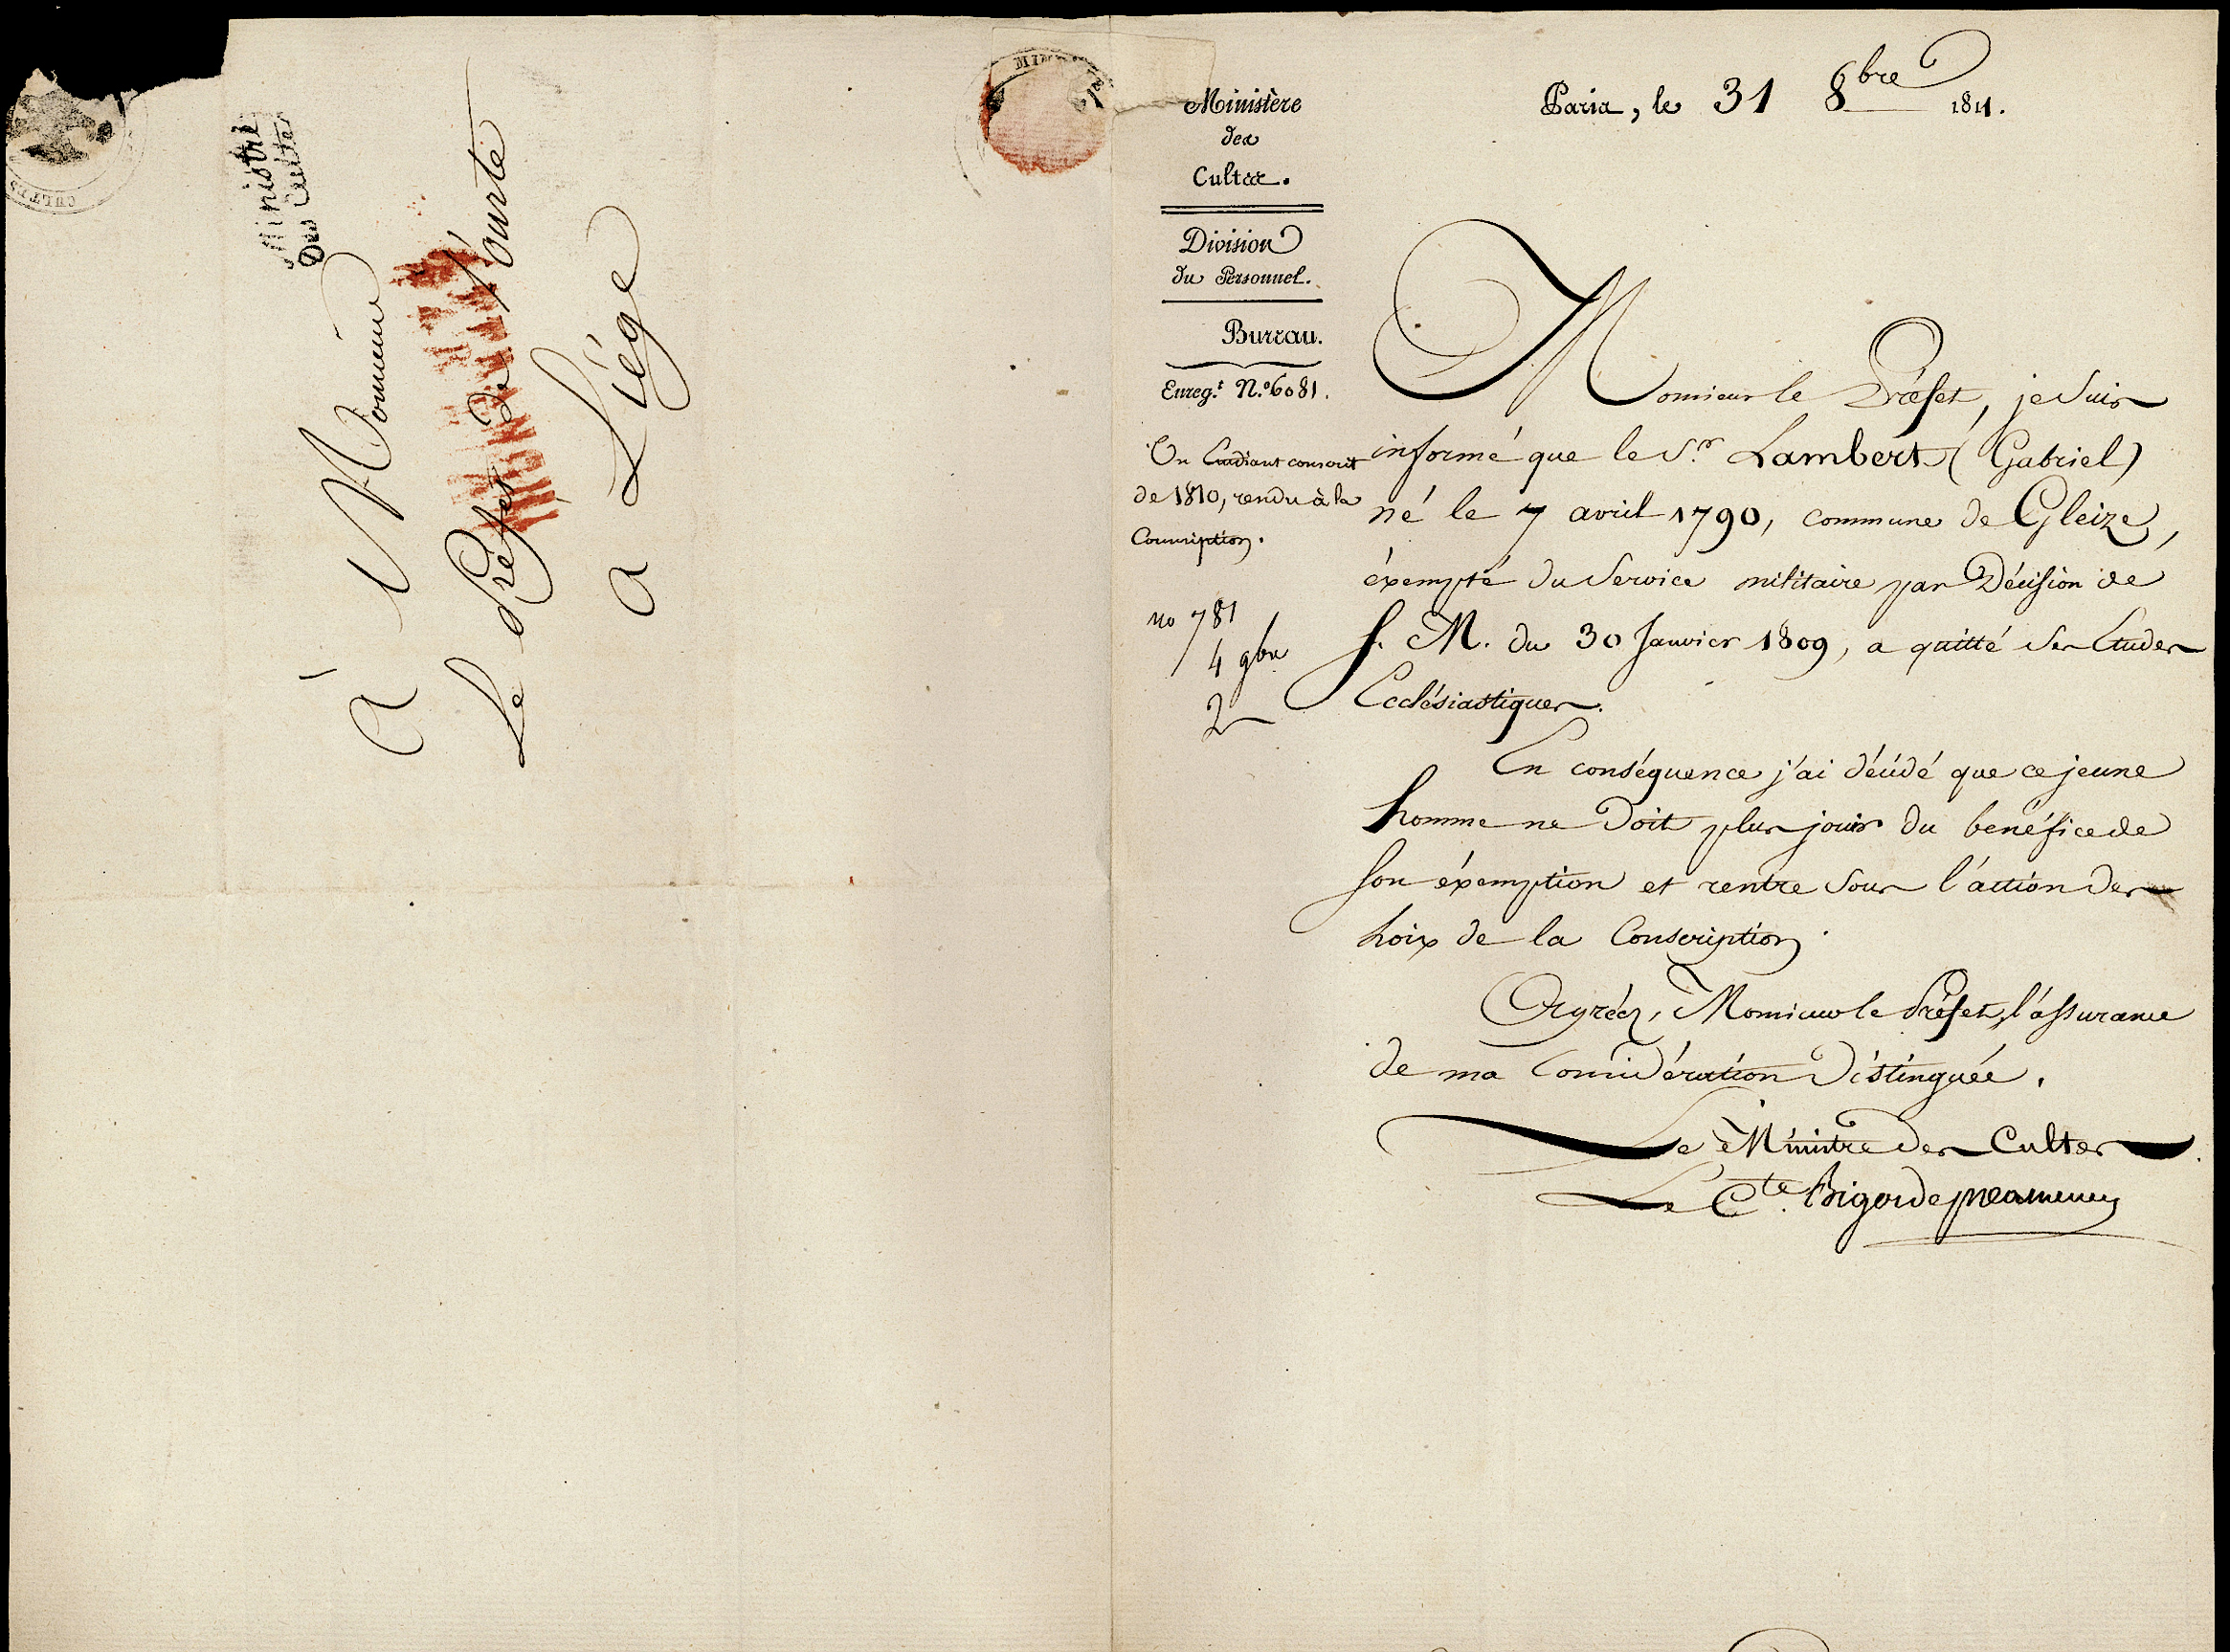 Ministre
Des Cultes
CULTES
À Monsieur
Le Préfet de l'ourte
a Liége
Ministère
des
Cultes.
Division
du Personnel.
Bureau.
Enreg.t N.o 6081.
Un Etudiant conscrit
de 1810, rendu à la
Conscription.
no 781
4 9bre
2
Paris, le 31 8bre 1811.
Monsieur le Préfet, je suis
informé que le S.r Lambert (Gabriel)
né le 7 avril 1790, commune de Gleize,
éxempté du Service militaire par Décision de
S. M. du 30 Janvier 1809, a quitté ses Etudes
Ecclésiastiques.
En conséquence j'ai décidé que ce jeune
homme ne doit plus jouir du benéfice de
son éxemption et rentre sous l'action des
loix de la Conscription.
Agréez, Monsieur le Préfet, l'assurance
de ma Considération Distinguée.
Le Ministre des Cultes
Le Cte. Bigot de préameneu